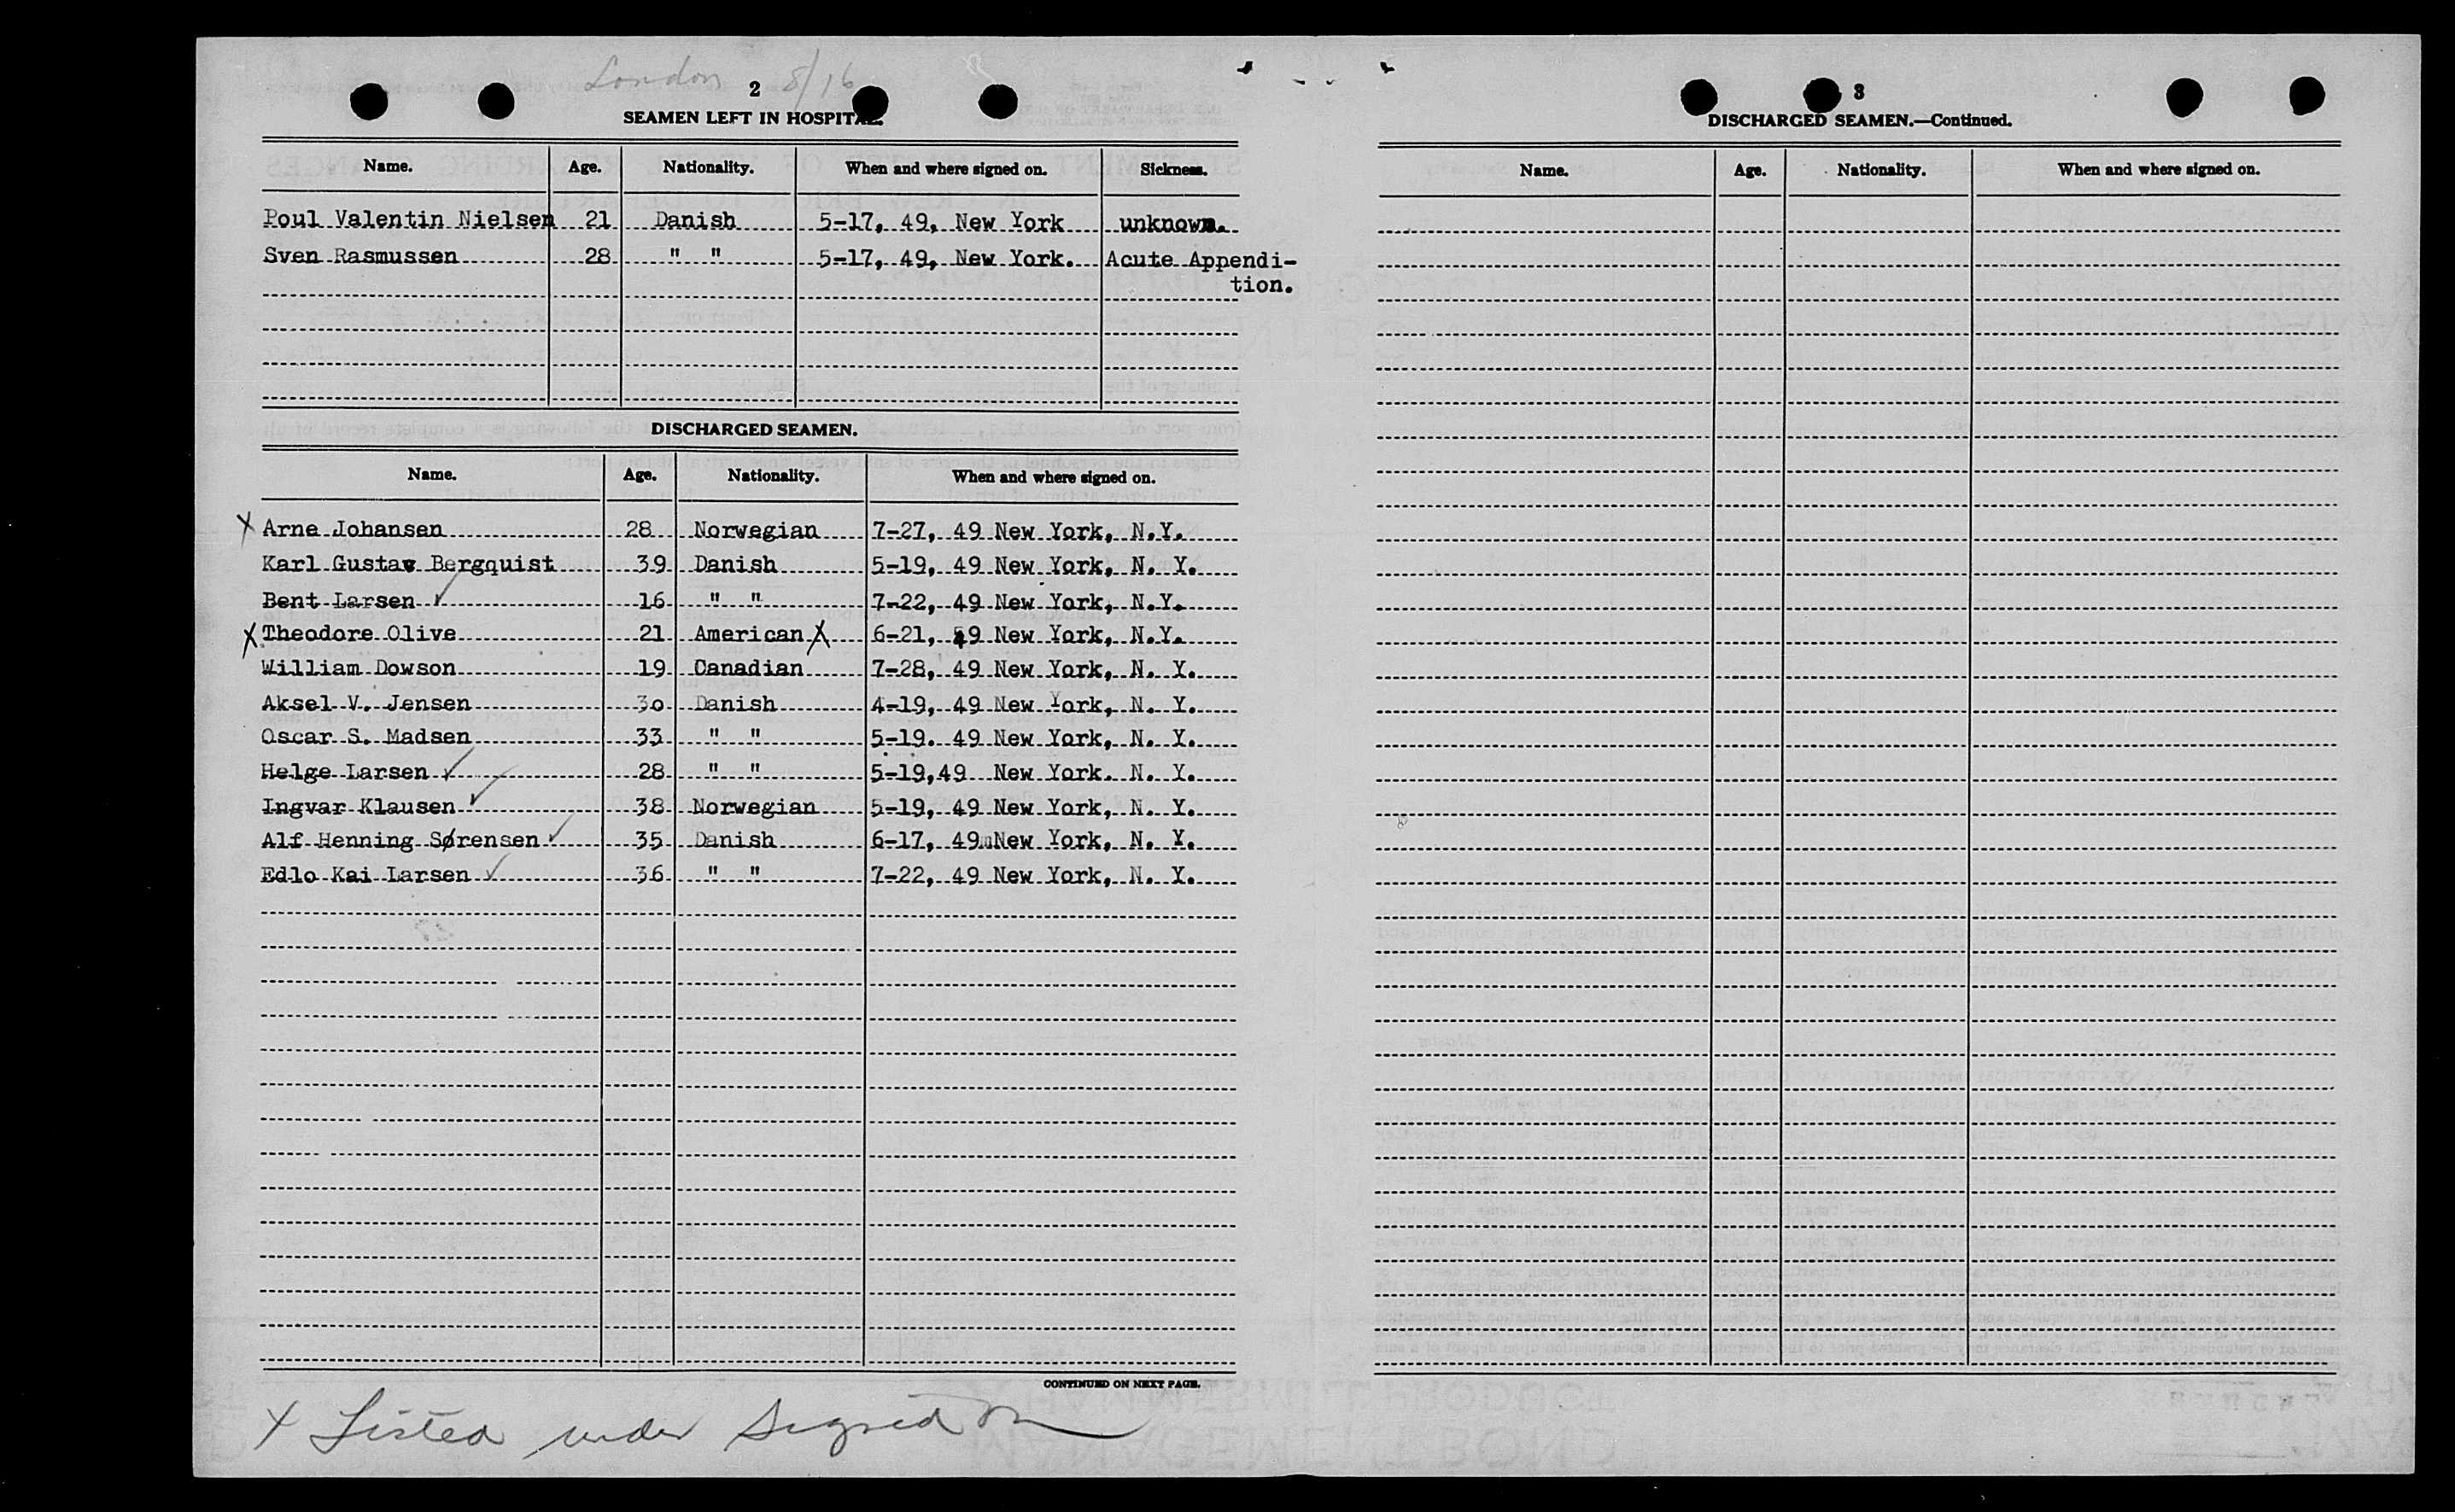 London 8/16
2
SEAMEN LEFT IN HOSPITAL.
Name. Age. Nationality. When and where signed on. Sickness.
Poul Valentin Nielsen 21 Danish 5-17, 49, New York unknown.
Sven Rasmussen 28 " " 5-17, 49, New York. Acute Appendi-
tion.
DISCHARGED SEAMEN.
Name. Age. Nationality. When and where signed on.
X Arne Johansen 28 Norwegian 7-27, 49 New York, N.Y.
Karl Gustav Bergquist 39 Danish 5-19, 49 New York, N. Y.
Bent Larsen ✓ 16 " " 7-22, 49 New York, N.Y.
X Theodore Olive 21 American X 6-21, 49 New York, N.Y.
William Dowson 19 Canadian 7-28, 49 New York, N. Y.
Aksel V. Jensen 30 Danish 4-19, 49 New York, N. Y.
Oscar S. Madsen 33 " " 5-19. 49 New York, N. Y.
Helge Larsen ✓ 28 " " 5-19,49 New York. N. Y.
Ingvar Klausen ✓ 38 Norwegian 5-19, 49 New York, N. Y.
Alf Henning Sørensen ✓ 35 Danish 6-17, 49 New York, N. Y.
Edlo Kai Larsen ✓ 36 " " 7-22, 49 New York, N. Y.
CONTINUED ON NEXT PAGE.
X Listed under Signed On
3
DISCHARGED SEAMEN.—Continued.
Name. Age. Nationality. When and where signed on.